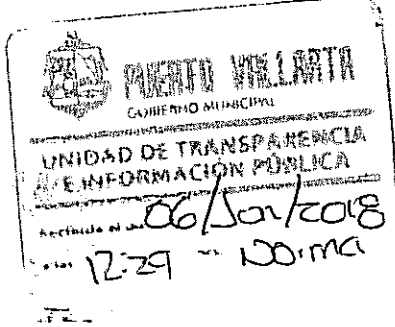 PUERTO VALLARTA
GOBIERNO MUNICIPAL
UNIDAD DE TRANSPARENCIA
E INFORMACIÓN PÚBLICA
Recibido el 06/Jun/2018
a las 12:29 Norma